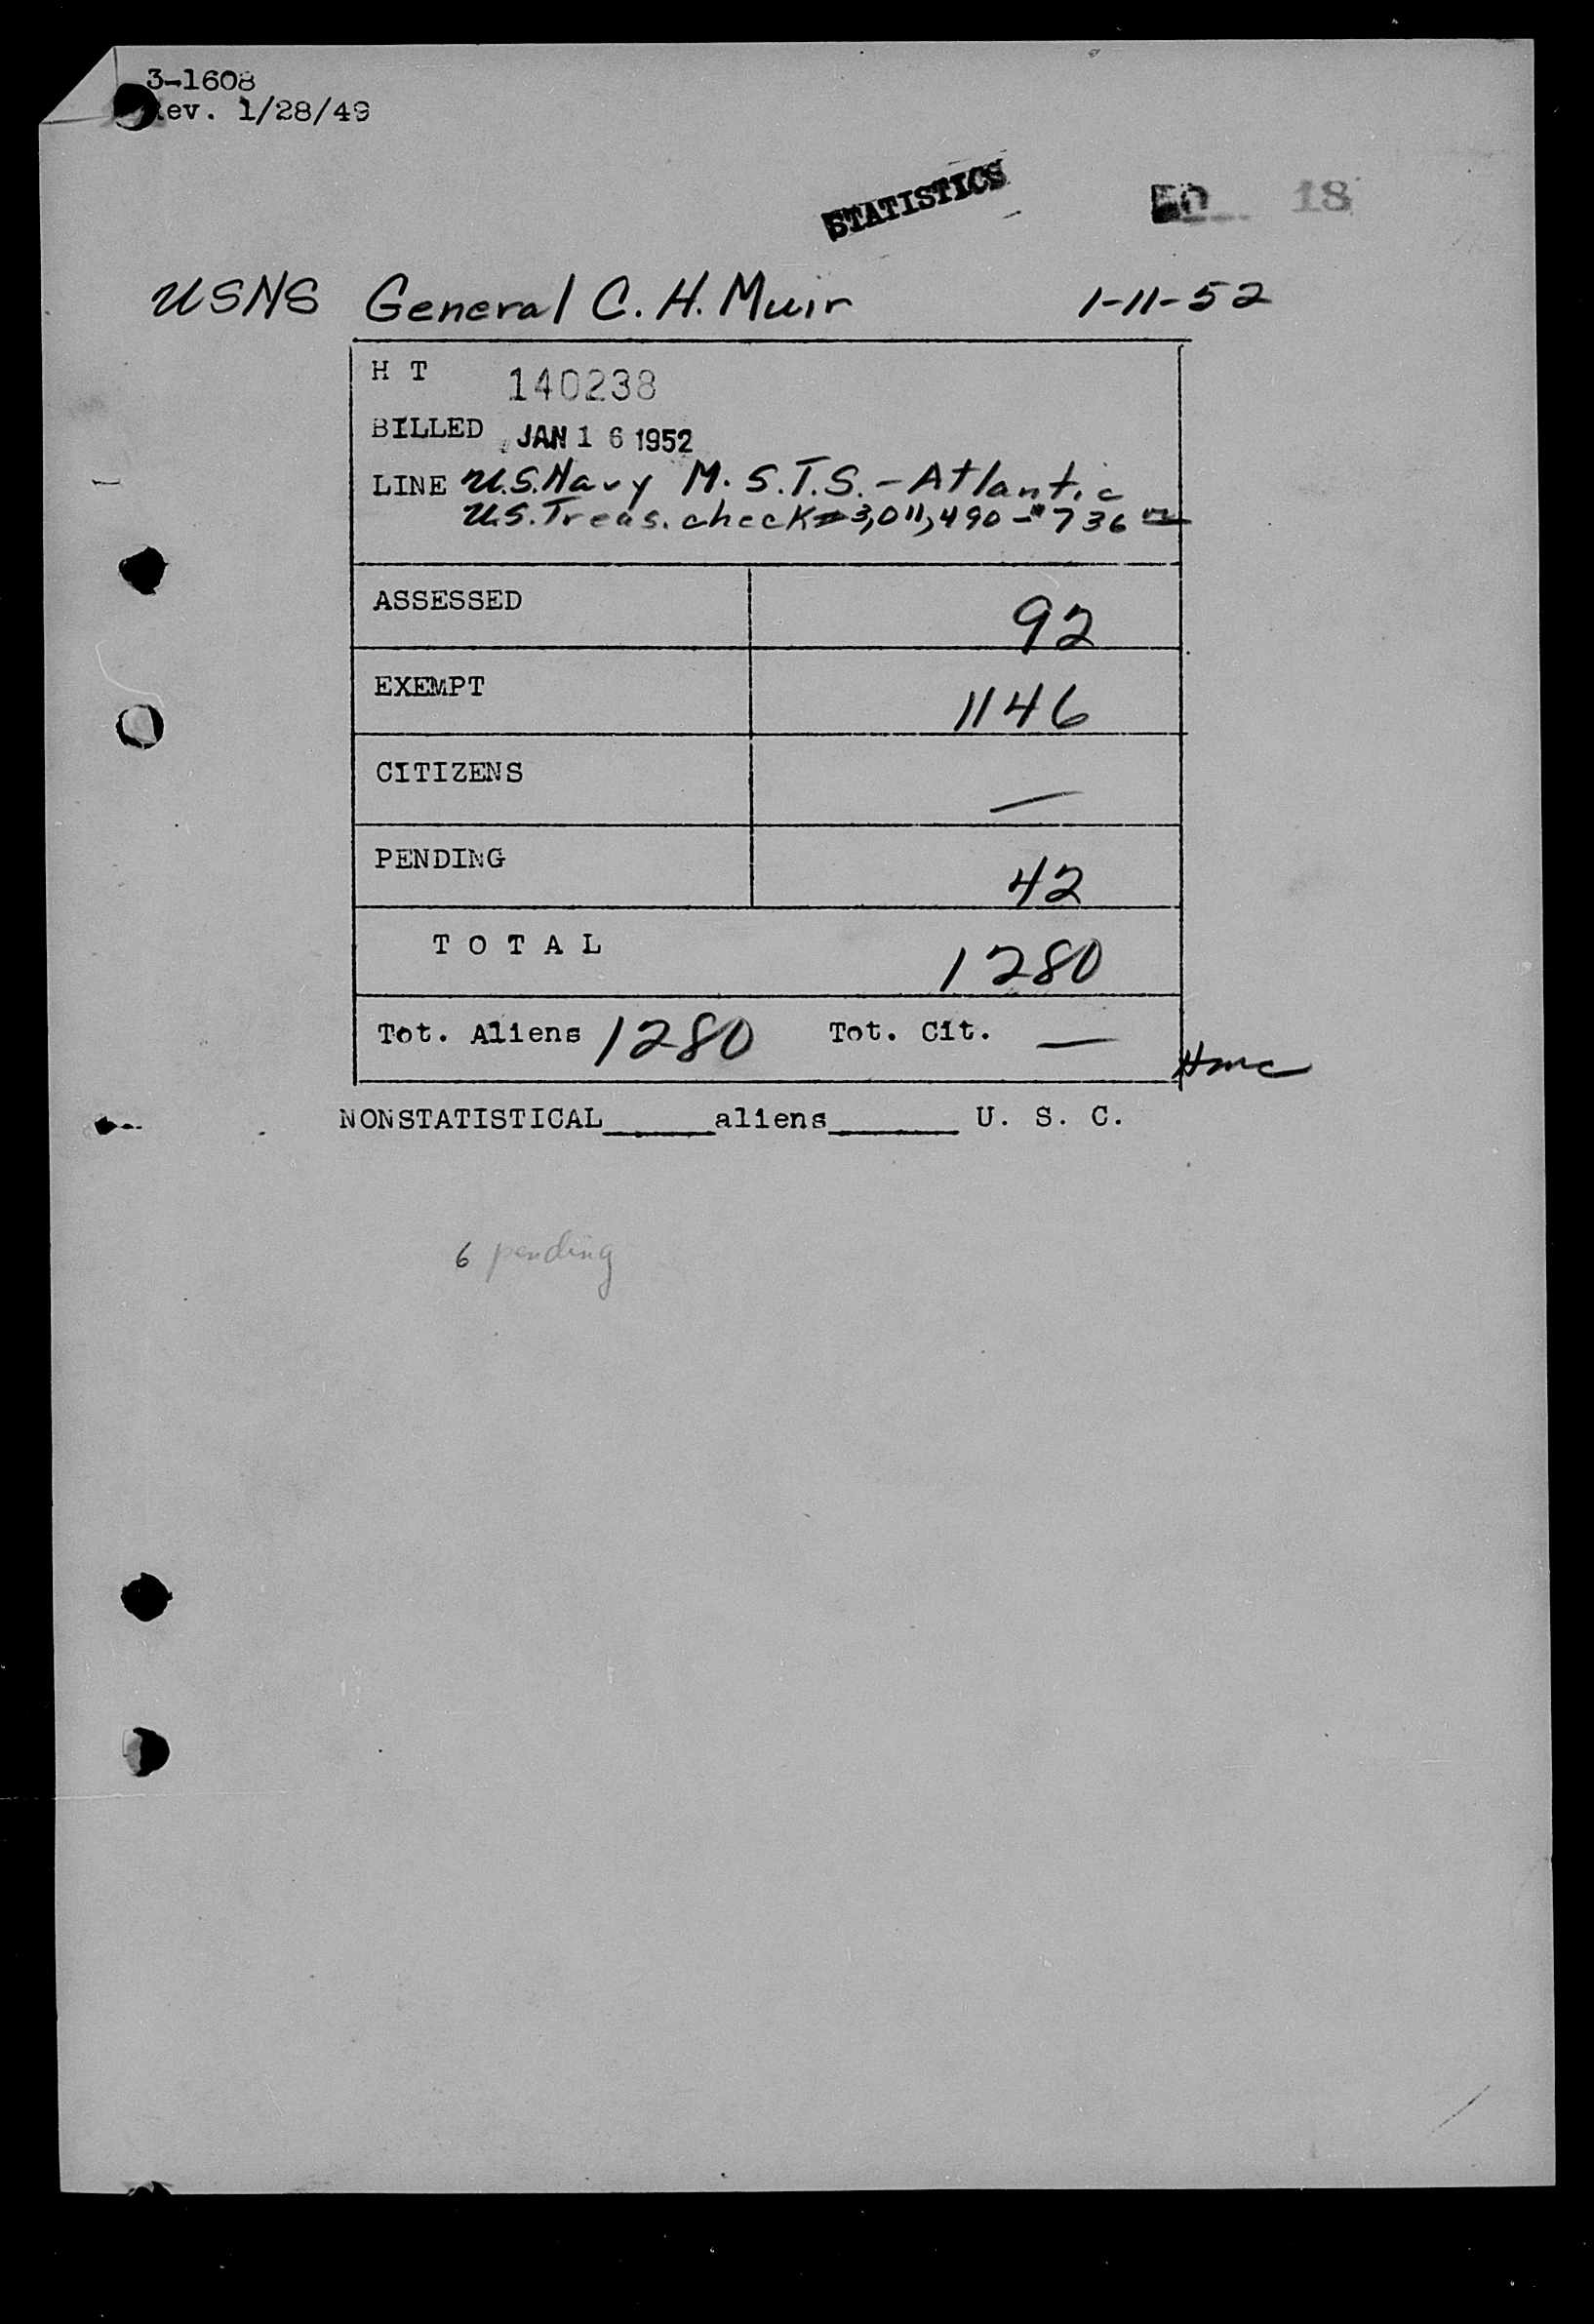 3-1608
Rev. 1/28/49
STATISTICS
18
USNS General C. H. Muir 1-11-52
H T 140238
BILLED JAN 16 1952
LINE U.S. Navy M.S.T.S. - Atlantic
U.S. Treas. check # 3,011,490 - $736
ASSESSED 92
EXEMPT 1146
CITIZENS —
PENDING 42
T O T A L 1280
Tot. Aliens 1280 Tot. Cit. —
Hmc
NONSTATISTICAL______aliens_______ U. S. C.
6 pending